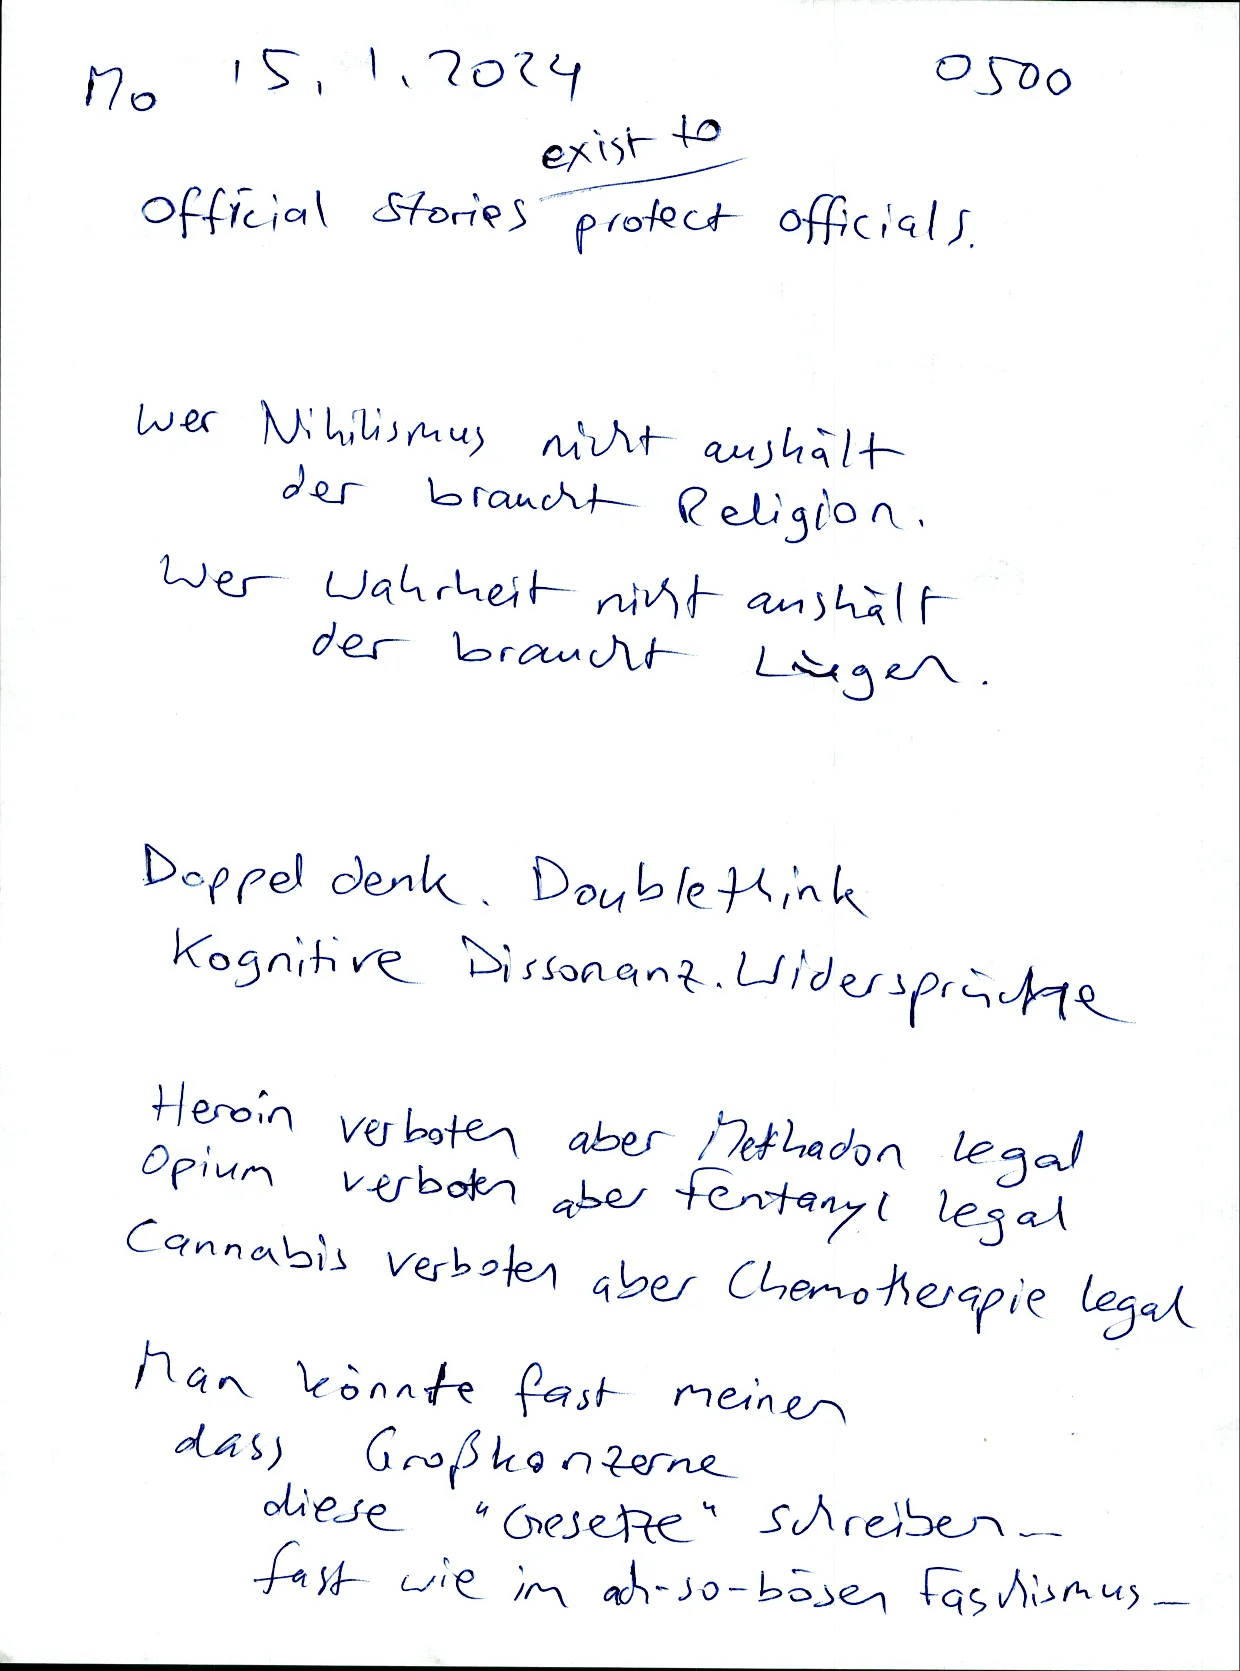 Mo 15.1.2024 0500
exist to
Official stories protect officials.
Wer Nihilismus nicht aushält
der braucht Religion.
Wer Wahrheit nicht aushält
der braucht Lügen.
Doppeldenk. Doublethink
Kognitive Dissonanz. Widersprüche
Heroin verboten aber Methadon legal
Opium verboten aber Fentanyl legal
Cannabis verboten aber Chemotherapie legal
Man könnte fast meinen
dass Großkonzerne
diese "Gesetze" schreiben_
fast wie im ach-so-bösen Faschismus_